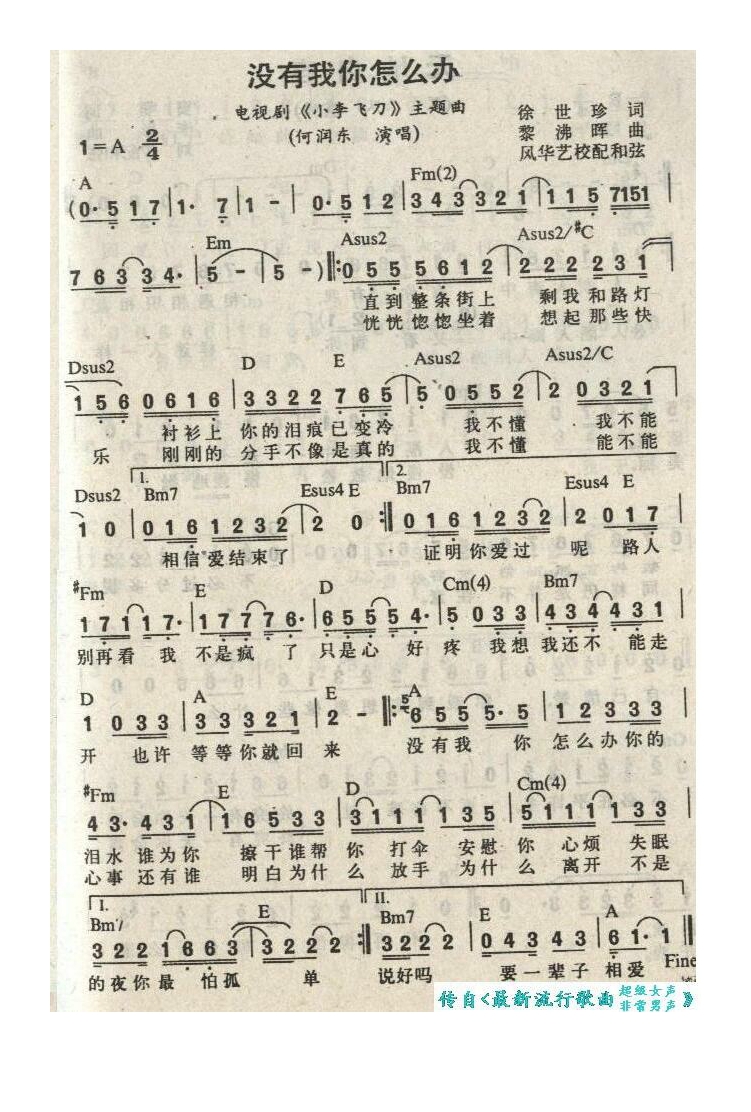 没有我你怎么办
电视剧《小李飞刀》主题曲
(何润东 演唱)
徐世珍 词
黎沸晖 曲
风华艺校配和弦
1=A 2/4
A Fm(2)
(0·5 17 | 1· 7 | 1 - | 0·5 12 | 343321 | 115 7151 |
Em Asus2 Asus2/#C
763 34· | 5 - | 5 - ) ‖: 0 5 5 5 6 1 2 | 2 2 2 2 3 1 |
直到整条街上 剩我和路灯
恍恍惚惚坐着 想起那些快
Dsus2 D E Asus2 Asus2/C
1 5 6 0 6 1 6 | 3 3 2 2 7 6 5 | 5 0 5 5 2 | 2 0 3 2 1 |
衬衫上 你的泪痕已变冷 我不懂 我不能
乐 刚刚的 分手不像是真的 我不懂 能不能
1. 2.
Dsus2 Bm7 Esus4 E Bm7 Esus4 E
1 0 | 0 1 6 1 2 3 2 | 2 0 :‖ 0 1 6 1 2 3 2 | 2 0 1 7 |
相信爱结束了 证明你爱过 呢 路人
#Fm E D Cm(4) Bm7
1 7 1 1 7· | 1 7 7 7 7 6· | 6 5 5 5 4· | 5 0 3 3 | 4 3 4 4 3 1 |
别再看 我 不是疯 了 只是心 好 疼 我想 我还不 能走
D A E A
1 0 3 3 | 3 3 3 2 1 | 2 - ‖: 5 6 5 5 5·5 | 1 2 3 3 3 |
开 也许 等等你就回 来 没有我 你 怎么办你的
#Fm E D Cm(4)
4 3· 4 3 1 | 1 6 5 3 3 | 3 1 1 1 1 3 5 | 5 1 1 1 1 3 3 |
泪水 谁为你 擦干谁帮 你 打伞 安慰 你 心烦 失眠
心事 还有谁 明白为什 么 放手 为什 么 离开 不是
I. II.
Bm7 E Bm7 E A
3 2 2 1 6 6 3 | 3 2 2 2 :‖ 3 2 2 2 | 0 4 3 4 3 | 6 1· 1 ‖
的夜你最 怕孤 单 说好吗 要一辈子 相爱 Fine
传自<最新流行歌曲 超级女声 非常男声 》